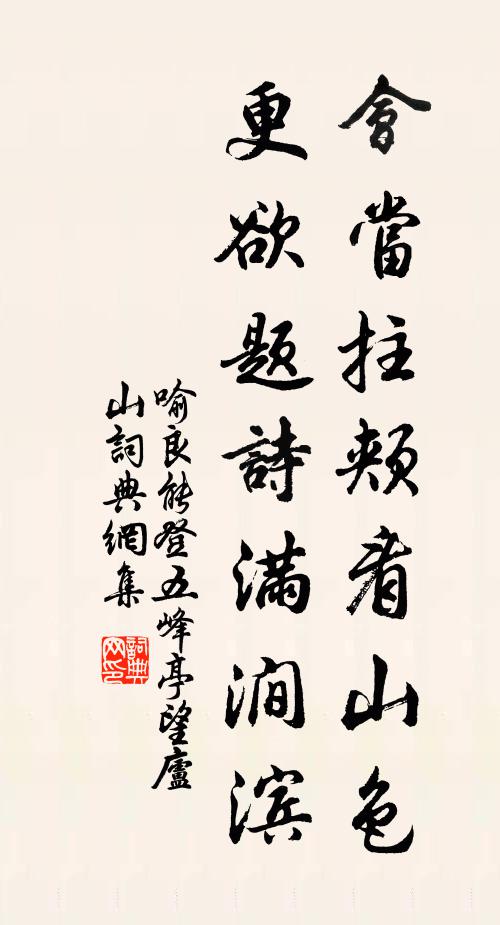 會當拄頰看山色
更欲题詩滿澗滨
喻良能登五峰亭望廬
山詞典網集
詞典
网印